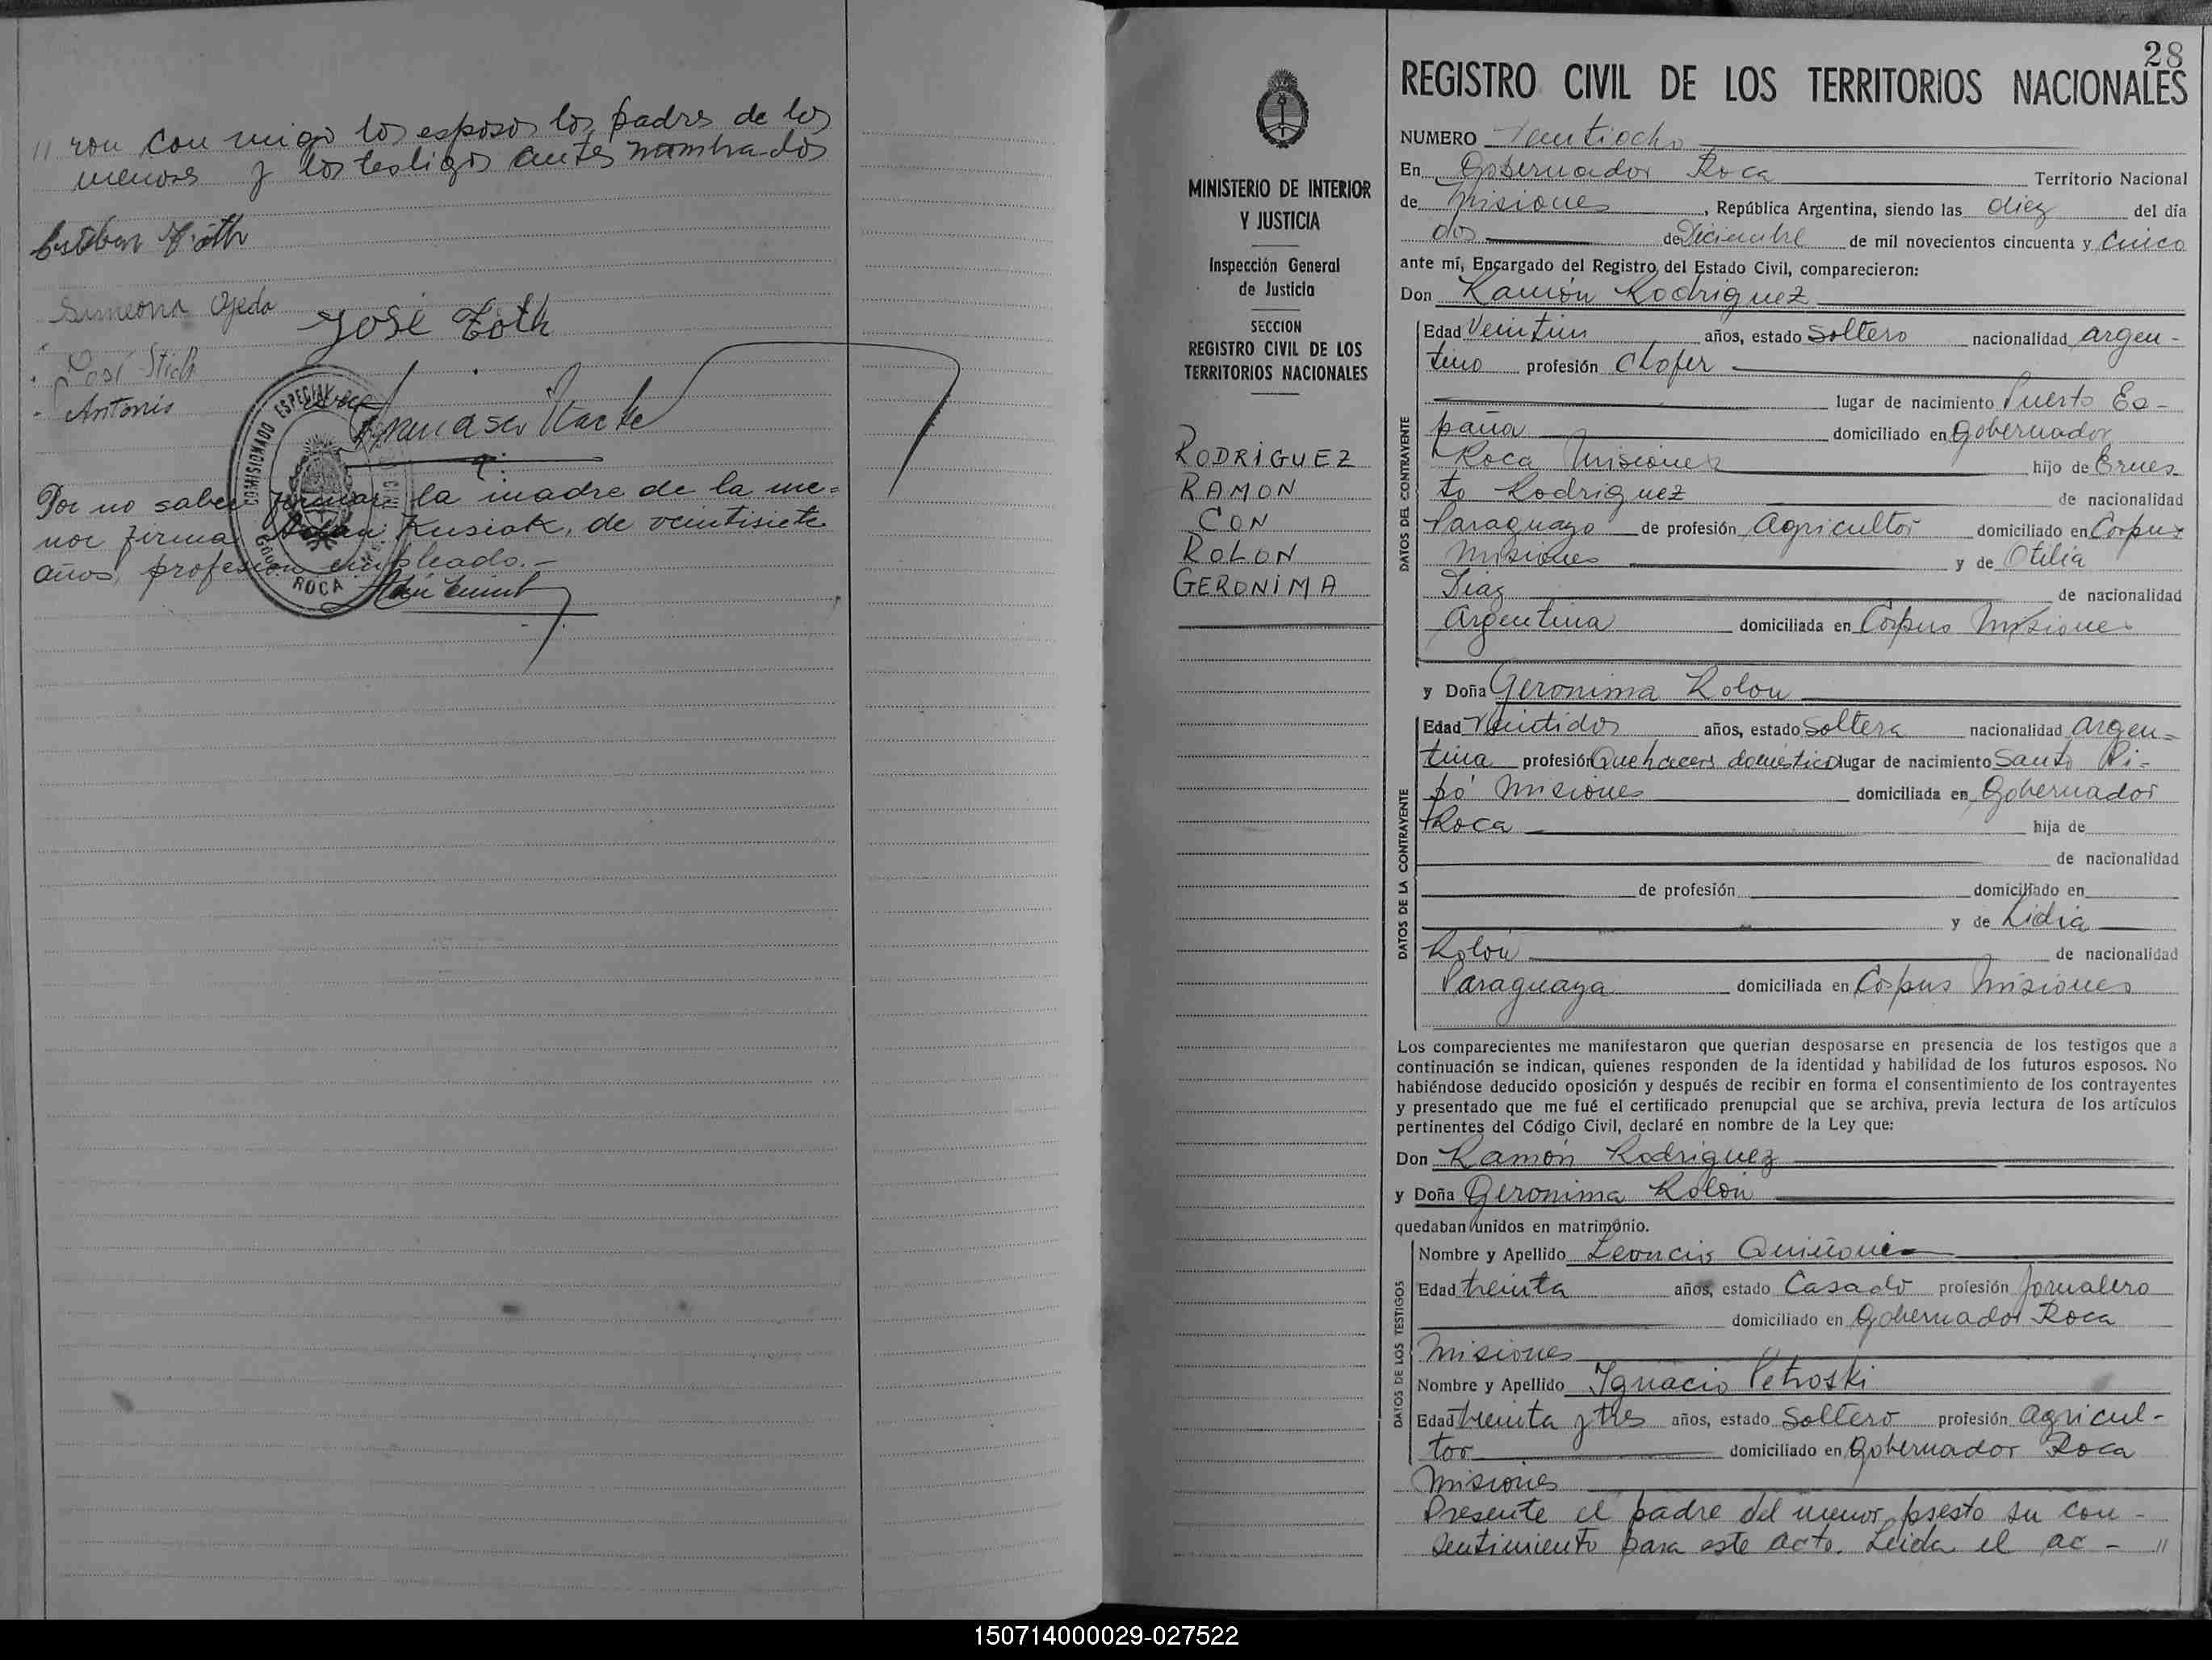 " ron con migo los esposos los padres de los
menores y los testigos antes nombrados
Esteban Tóth
Simeona Ojeda
José Tóth
José Stich
Antonio
Por no saber firmar la madre de la me-
nor firma Kusiak, de veintisiete
años, profesión empleado.-
COMISIONADO ESPECIAL
ROCA
28
MINISTERIO DE INTERIOR
Y JUSTICIA
Inspección General
de Justicia
SECCION
REGISTRO CIVIL DE LOS
TERRITORIOS NACIONALES
RODRIGUEZ
RAMON
CON
ROLON
GERONIMA
REGISTRO CIVIL DE LOS TERRITORIOS NACIONALES
NUMERO Veintiocho
En Gobernador Roca Territorio Nacional
de Misiones, República Argentina, siendo las diez del día
dos de Diciembre de mil novecientos cincuenta y Cinco
ante mí, Encargado del Registro del Estado Civil, comparecieron:
Don Ramón Rodriguez
DATOS DEL CONTRAYENTE
Edad Veintiun años, estado Soltero nacionalidad argen-
tino profesión Chofer
lugar de nacimiento Puerto Es-
paña domiciliado en Gobernador
Roca Misiones hijo de Ernes-
to Rodriguez de nacionalidad
Paraguayo de profesión Agricultor domiciliado en Corpus
Misiones y de Otilia
Diaz de nacionalidad
Argentina domiciliada en Corpus Misiones
y Doña Geronima Rolon
DATOS DE LA CONTRAYENTE
Edad Veintidos años, estado Soltera nacionalidad argen-
tina profesión Quehaceres domestico lugar de nacimiento Santo Pi-
pó Misiones domiciliada en Gobernador
Roca hija de
de nacionalidad
de profesión domiciliado en
y de Lidia
Rolon de nacionalidad
Paraguaya domiciliada en Corpus Misiones
Los comparecientes me manifestaron que querían desposarse en presencia de los testigos que a
continuación se indican, quienes responden de la identidad y habilidad de los futuros esposos. No
habiéndose deducido oposición y después de recibir en forma el consentimiento de los contrayentes
y presentado que me fué el certificado prenupcial que se archiva, previa lectura de los artículos
pertinentes del Código Civil, declaré en nombre de la Ley que:
Don Ramón Rodriguez
y Doña Geronima Rolon
quedaban unidos en matrimonio.
DATOS DE LOS TESTIGOS
Nombre y Apellido Leoncio Quiñones
Edad treinta años, estado Casado profesión Jornalero
domiciliado en Gobernador Roca
Misiones
Nombre y Apellido Ignacio Petroski
Edad treinta y tres años, estado Soltero profesión agricul-
tor domiciliado en Gobernador Roca
Misiones
Presente el padre del menor presto su con-
sentimiento para este acto. Leida el ac- "
150714000029-027522